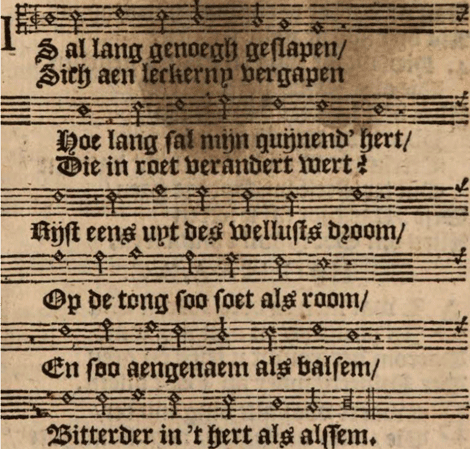 IS al lang genoegh geslapen/
Sich aen leckerny vergapen
Hoe lang sal mijn quijnend' hert/
Die in roet verandert wert?
Rijst eens uyt des wellusts droom/
Op de tong soo soet als room/
En soo aengenaem als balsem/
Bitterder in 't hert als alssem.